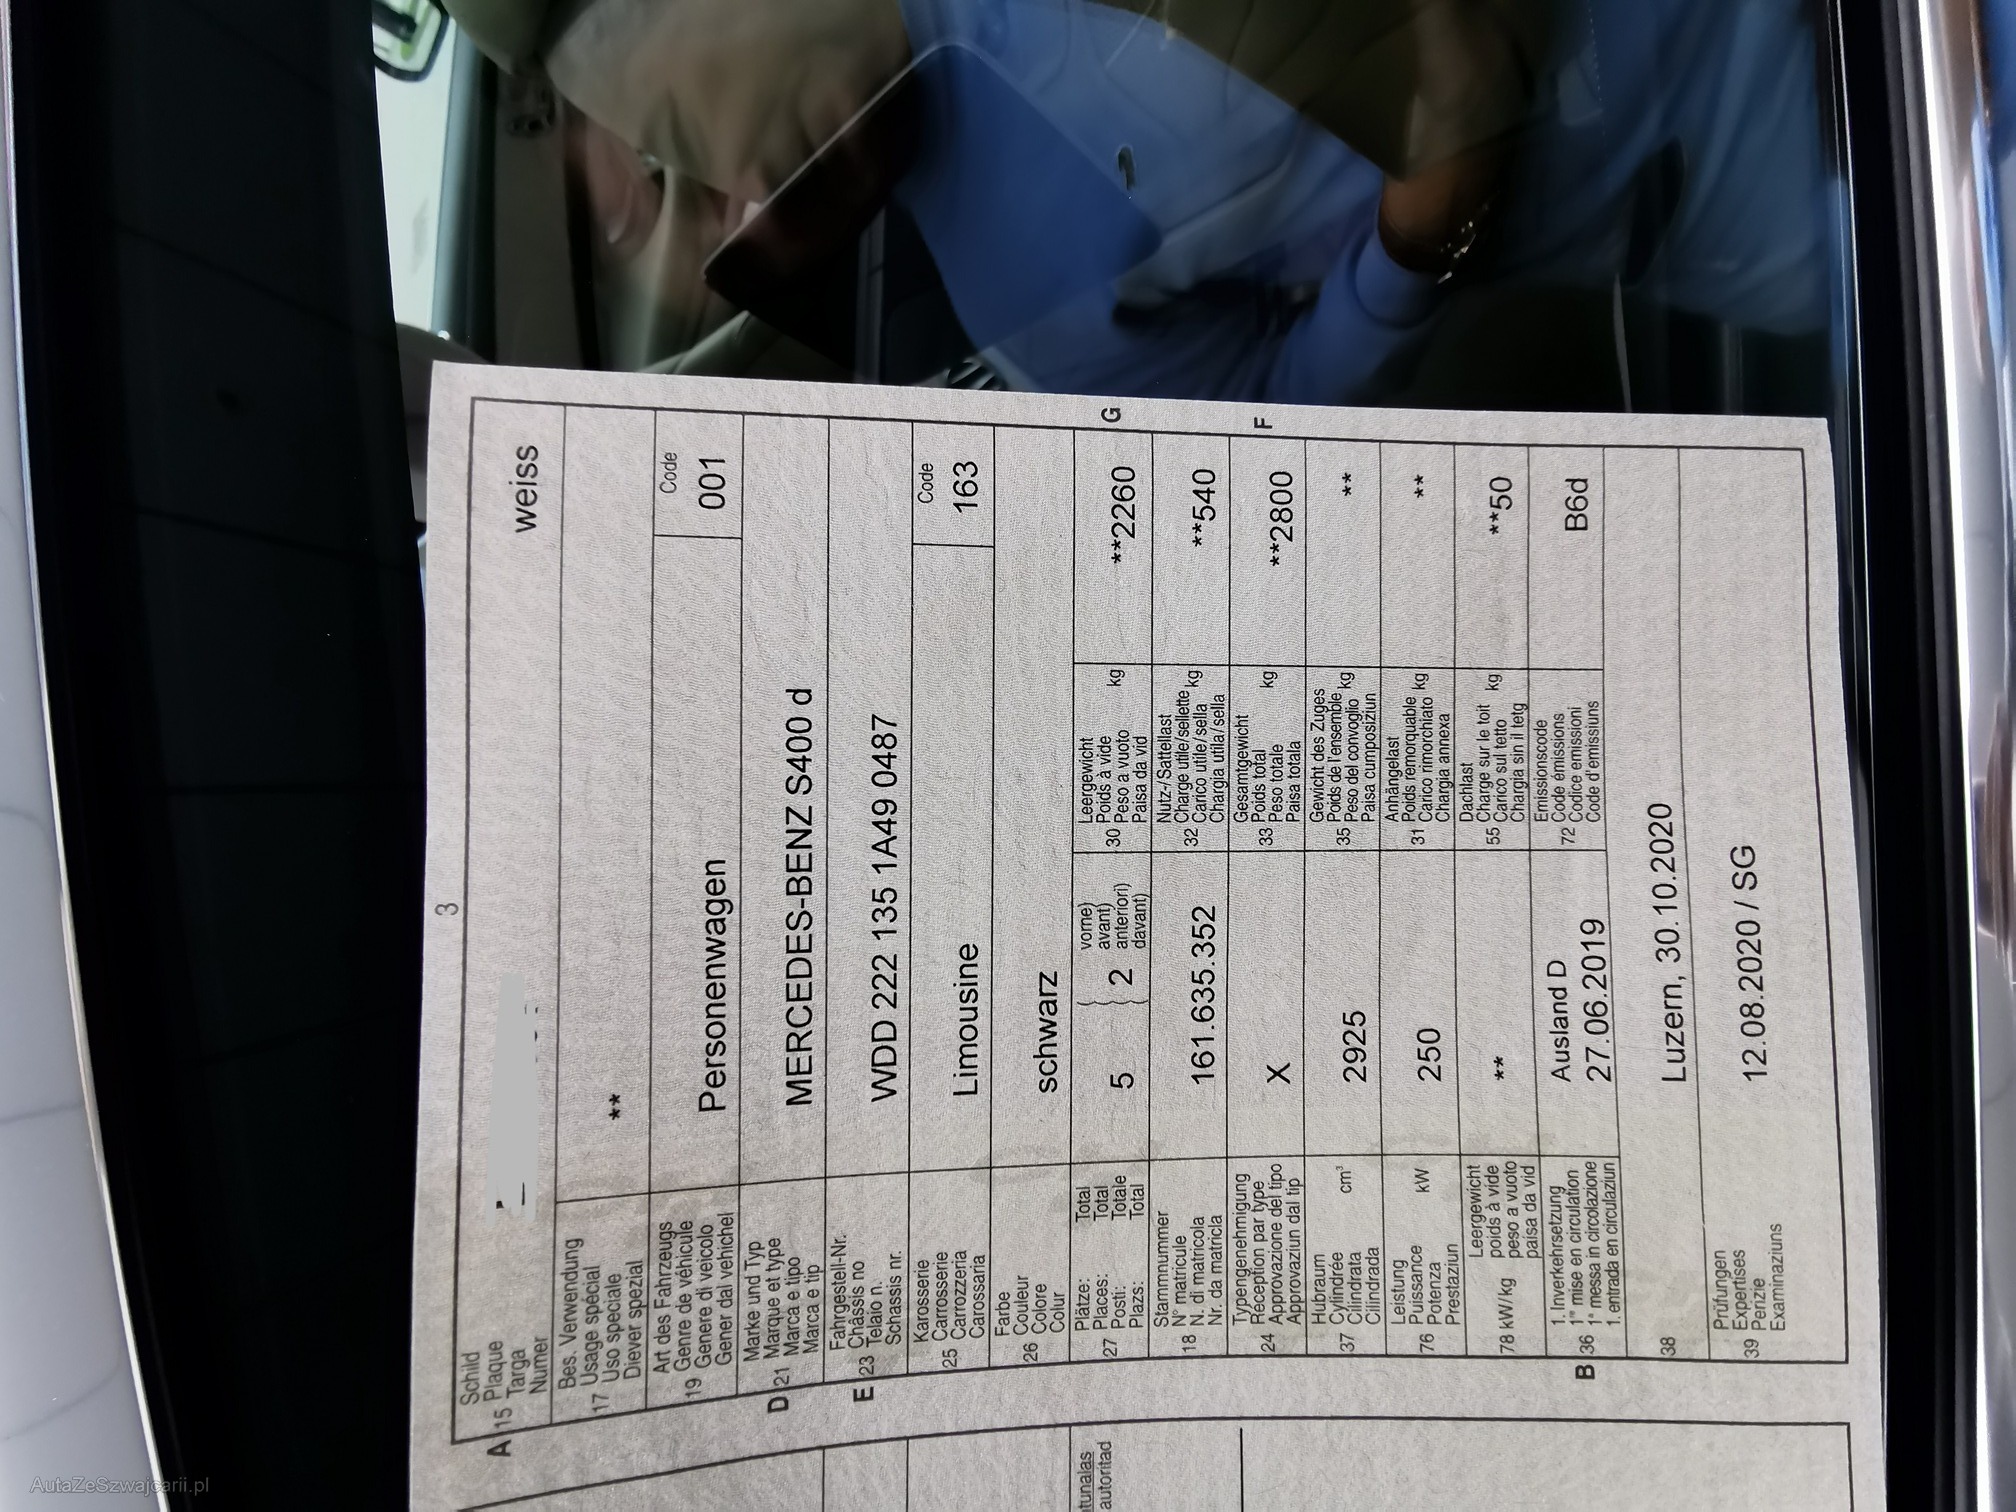 3
Schild
Plaque
Targa
Numer
A 15
weiss
Bes. Verwendung
17 Usage spécial
Uso speciale
Diever spezial
**
Art des Fahrzeugs
Genre de véhicule
19 Genere di veicolo
Gener dal vehichel
Personenwagen
Code
001
Marke und Typ
D 21 Marque et type
Marca e tipo
Marca e tip
MERCEDES-BENZ S400 d
Fahrgestell-Nr.
Châssis no
E 23 Telaio n.
Schassis nr.
WDD 222 135 1A49 0487
Karosserie
Carrosserie
25 Carrozzeria
Carossaria
Limousine
Code
163
Farbe
Couleur
26 Colore
Colur
schwarz
Plätze: Total
Places: Total
27 Posti: Totale
Plazs: Total
5
2
vorne)
avant)
anteriori)
davant)
Leergewicht
Poids à vide
30 Peso a vuoto kg
Paisa da vid
**2260
G
Stammnummer
N° matricule
18 N. di matricola
Nr. da matricla
161.635.352
Nutz-/Sattellast
Charge utile/sellette
32 Carico utile/sella kg
Chargia utila/sella
**540
Typengenehmigung
Réception par type
24 Approvazione del tipo
Approvaziun dal tip
X
Gesamtgewicht
Poids total
33 Peso totale kg
Paisa totala
**2800
F
Hubraum
Cylindrée cm³
37 Cilindrata
Cilindrada
2925
Gewicht des Zuges
Poids de l'ensemble
35 Peso del convoglio kg
Paisa cumposiziun
**
Leistung
Puissance kW
76 Potenza
Prestaziun
250
Anhängelast
Poids remorquable
31 Carico rimorchiato kg
Chargia annexa
**
Leergewicht
poids à vide
78 kW/kg peso a vuoto
paisa da vid
**
Dachlast
Charge sur le toit
55 Carico sul tetto kg
Chargia sin il tetg
**50
1. Inverkehrsetzung
1re mise en circulation
B 36 1a messa in circolazione
1. entrada en circulaziun
Ausland D
27.06.2019
Emissionscode
Code émissions
72 Codice emissioni
Code d'emissiuns
B6d
38
Luzern, 30.10.2020
Prüfungen
Expertises
39 Perizie
Examinaziuns
12.08.2020 / SG
autoritad
AutaZeSzwajcarii.pl